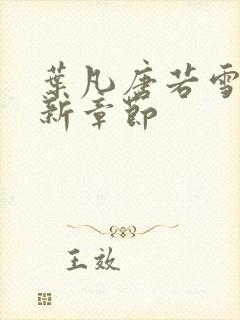 葉凡唐若雪
新章節
王效